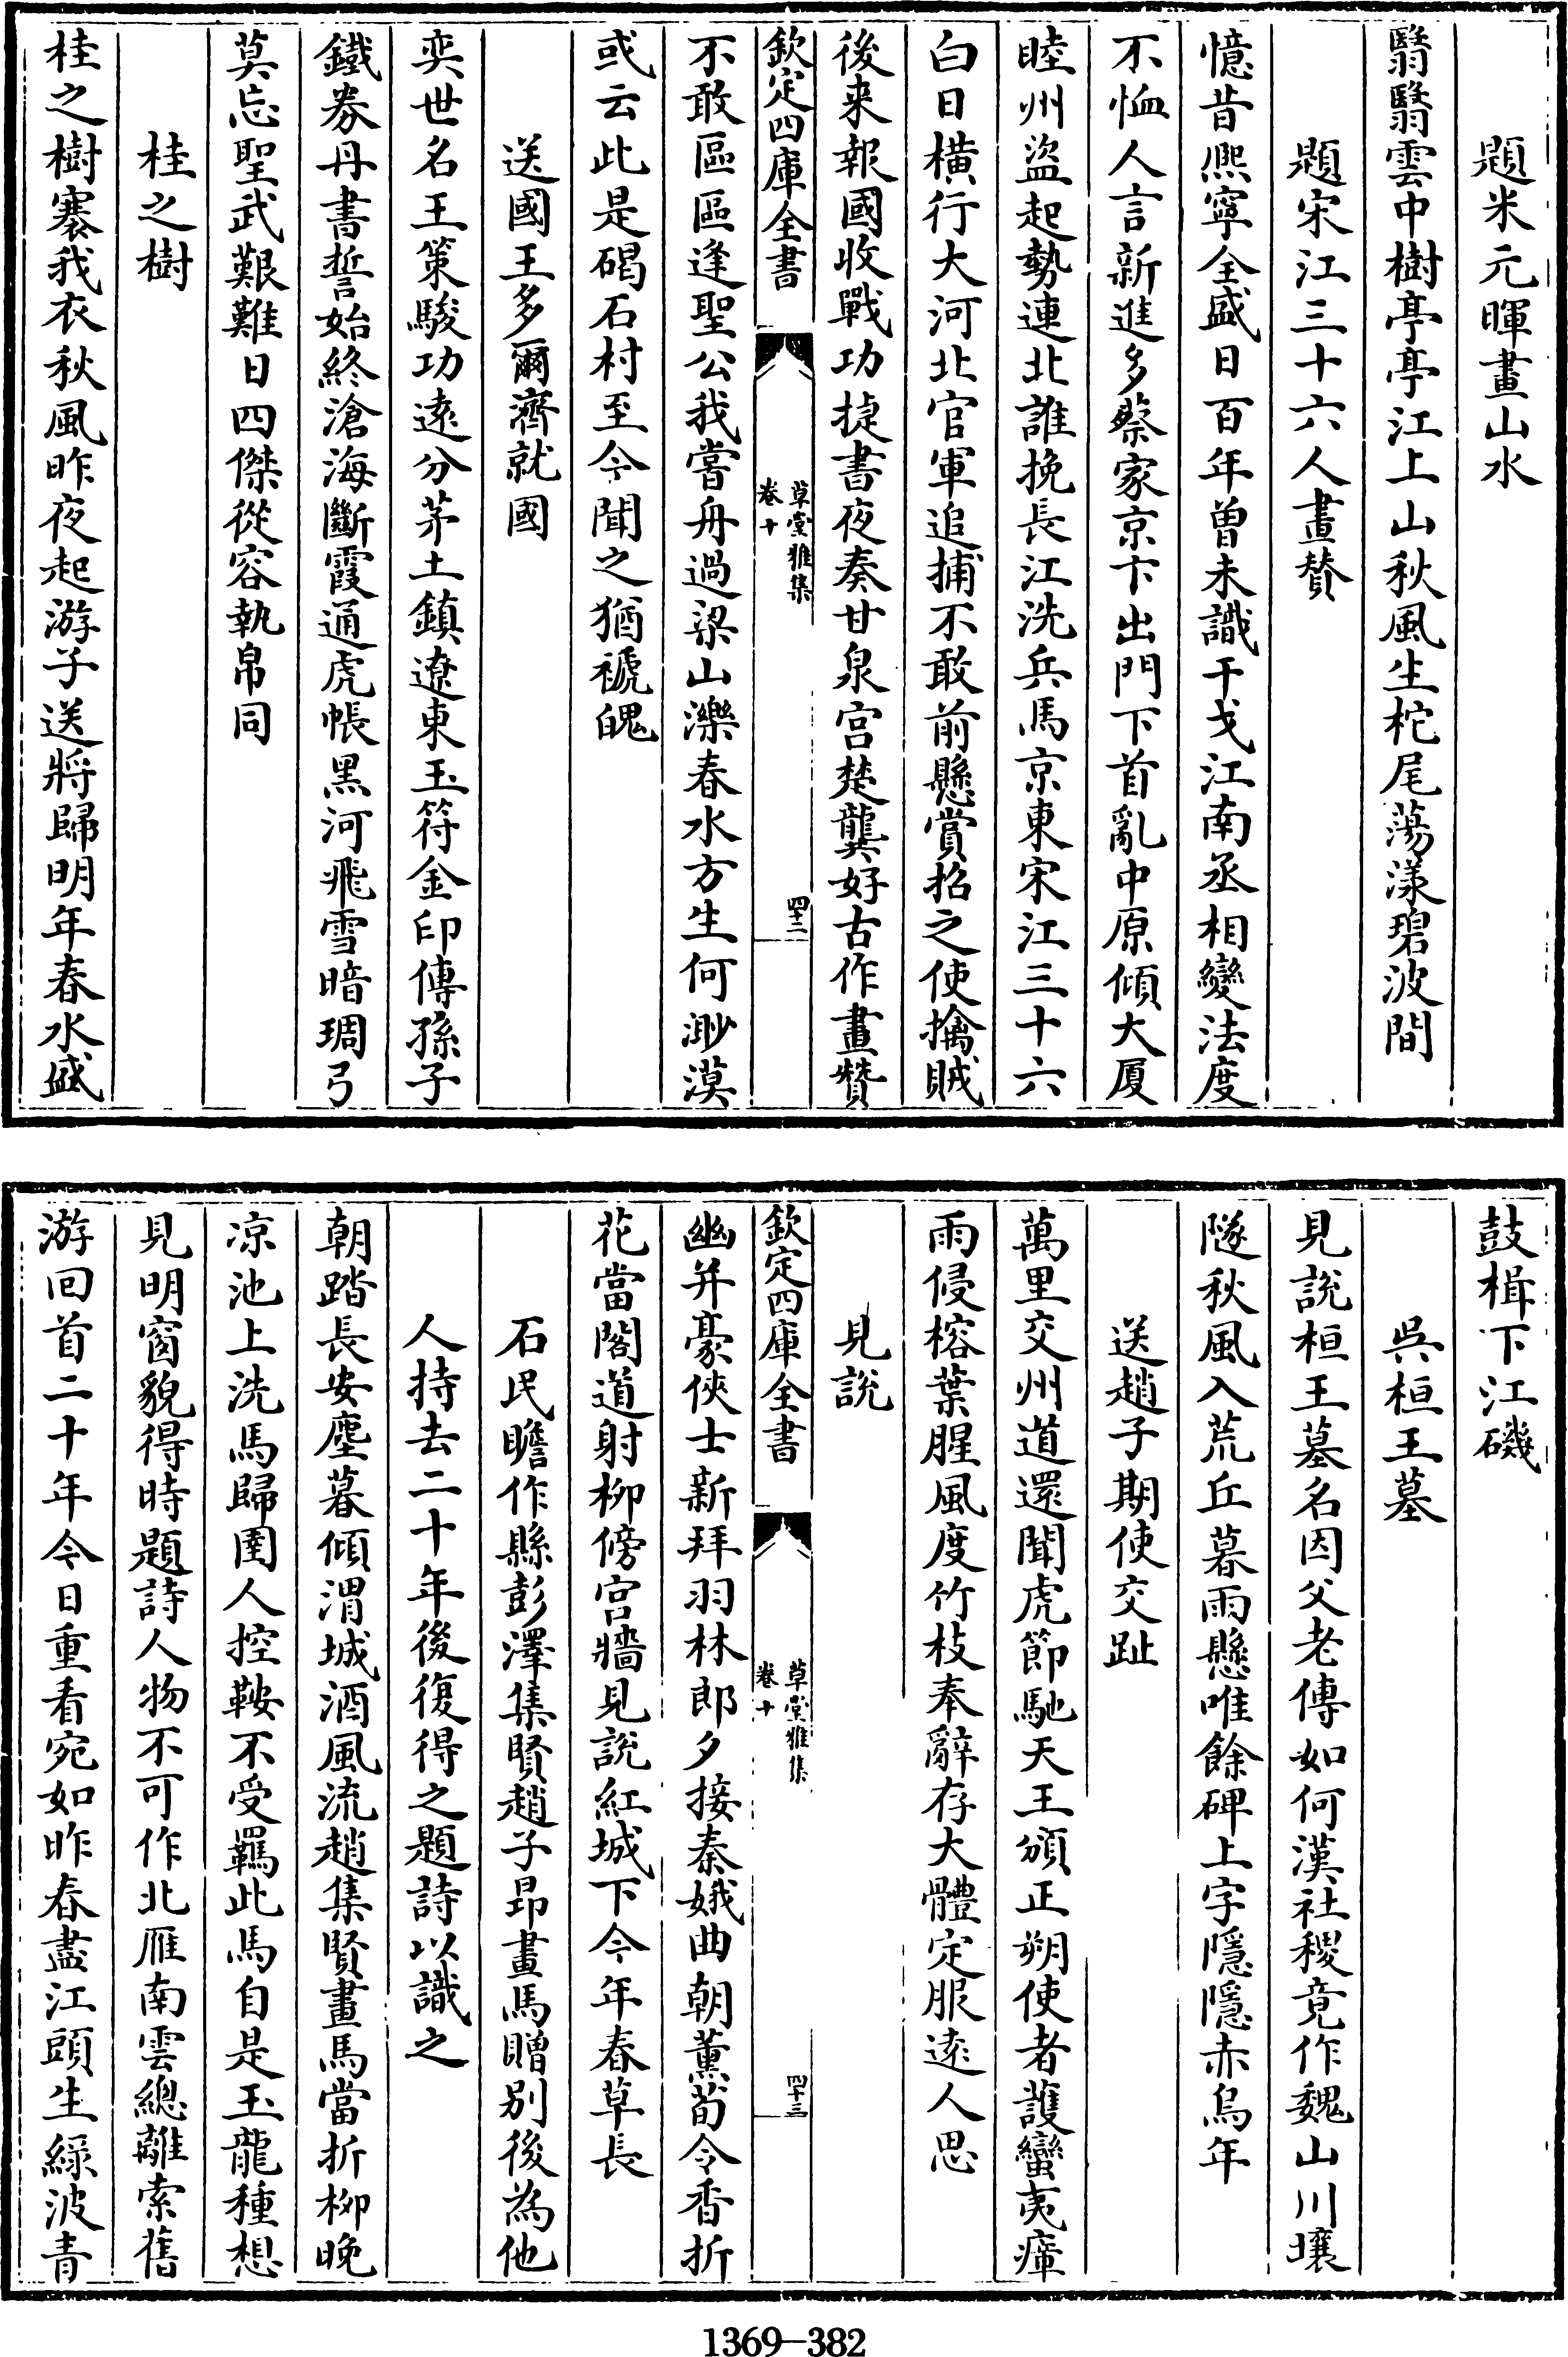 題米元暉畫山水
翳翳雲中樹亭亭江上山秋風生柁尾蕩漾碧波間
題宋江三十六人畫贊
憶昔熈寧全盛日百年曽未識干戈江南丞相變法度
不恤人言新進多蔡家京卞出門下首亂中原傾大厦
睦州盜起勢連北誰挽長江洗兵馬京東宋江三十六
白日橫行大河北官軍追捕不敢前懸賞招之使擒賊
後来報國收戰功捷書夜奏甘泉宫楚龔好古作畫贊
欽定四庫全書
草堂雅集
卷十
四十二
不敢區區逢聖公我嘗舟過梁山濼春水方生何渺漠
或云此是碣石村至今聞之猶褫魄
送國王多爾濟就國
奕世名王策駿功逺分茅土鎮遼東玉符金印傳孫子
鐵券丹書誓始終滄海斷霞通虎帳黑河飛雪暗琱弓
莫忘聖武艱難日四傑從容執帛同
桂之樹
桂之樹褰我衣秋風昨夜起游子送將歸明年春水盛
鼓楫下江磯
吳桓王墓
見說桓王墓名因父老傳如何漢社稷竟作魏山川壤
隧秋風入荒丘暮雨懸唯餘碑上字隱隱赤烏年
送趙子期使交趾
萬里交州道還聞虎節馳天王頒正朔使者護蠻夷瘴
雨侵榕葉腥風度竹枝奉辭存大體定服逺人思
見說
欽定四庫全書
草堂雅集
卷十
四十三
幽并豪俠士新拜羽林郎夕接秦娥曲朝薰荀令香折
花當閣道射柳傍宫牆見說紅城下今年春草長
石民瞻作縣彭澤集賢趙子昂畫馬贈别後為他
人持去二十年後復得之題詩以識之
朝踏長安塵暮傾渭城酒風流趙集賢畫馬當折柳晚
凉池上洗馬歸圉人控鞍不受羈此馬自是玉龍種想
見明窗貌得時題詩人物不可作北雁南雲總離索舊
游回首二十年今日重看宛如昨春盡江頭生綠波青
1369-382